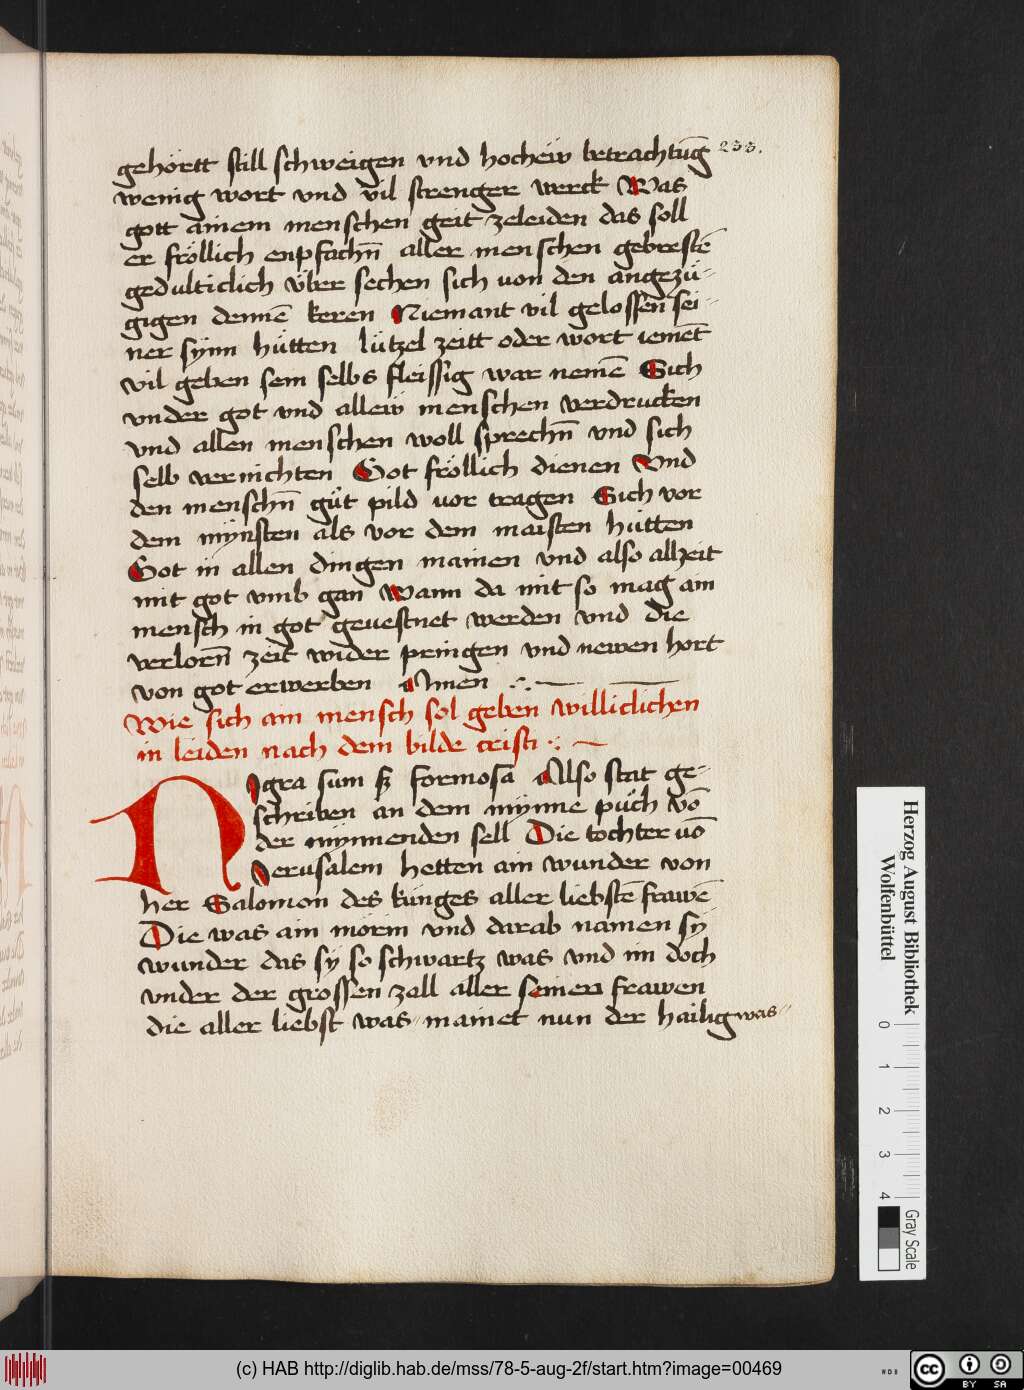 gehörtt still schweigen vnd hochew betrachtūg 233.
wenig wort vnd vil strenger werck Was
gott ainem menschen geit zeleiden das soll
er frölich enpfachn̄ aller menschen gebrestē
gedulticlich v̈ber sechen sich von den angezü-
gigen dennē keren Niemant vil gelossen sei-
ner synn hütten lützel zeitt oder wort iemēt
vil geben sem selbs fleissig war nemē Sich
vnder got vnd allew menschen verdrucken
vnd allen menschen woll sprechn̄ vnd sich
selb vernichten Got fröllich dienen Vnd
den menschn̄ güt pild vor tragen Sich vor
dem mynsten als vor dem maisten hütten
Got in allen dingen mainen vnd also allzeit
mit got vmb gan Wann da mit so mag ain
mensch in got geuestnet werden vnd die
verlorn̄ zeit wider pringen vnd newen hort
von got erwerben Amen
Wie sich ain mensch sol geben williclichen
in leiden nach dem bilde cristi
Nigra sum sz formosa Also stat ge-
schriben an dem mynne püch vō
der mynnenden sell Die tochter vō
Jerusalem hetten ain wunder von
her Salomon des künges aller liebstē frawē
Die was ain mörin vnd darab namen sy
wunder das sy so schwartz was vnd im doch
vnder der grossen zall aller seinen frawen
die aller liebst was mainet nun der hailig was
Herzog August Bibliothek
Wolfenbüttel
0 1 2 3 4
Gray Scale
(c) HAB http://diglib.hab.de/mss/78-5-aug-2f/start.htm?image=00469
WDB
cc BY SA